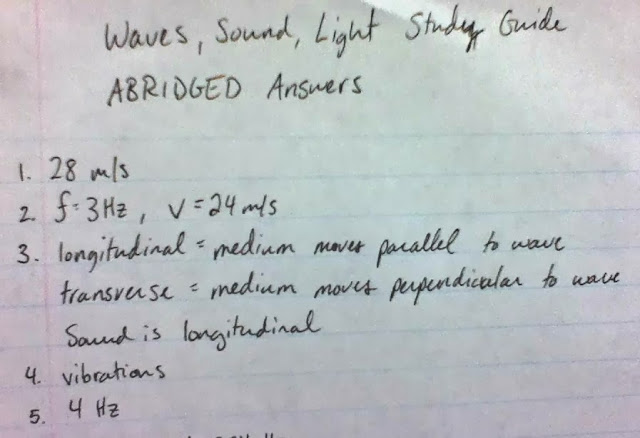 Waves, Sound, Light Study Guide
ABRIDGED Answers
1. 28 m/s
2. f=3Hz, v=24 m/s
3. longitudinal = medium moves parallel to wave
transverse = medium moves perpendicular to wave
Sound is longitudinal
4. vibrations
5. 4 Hz